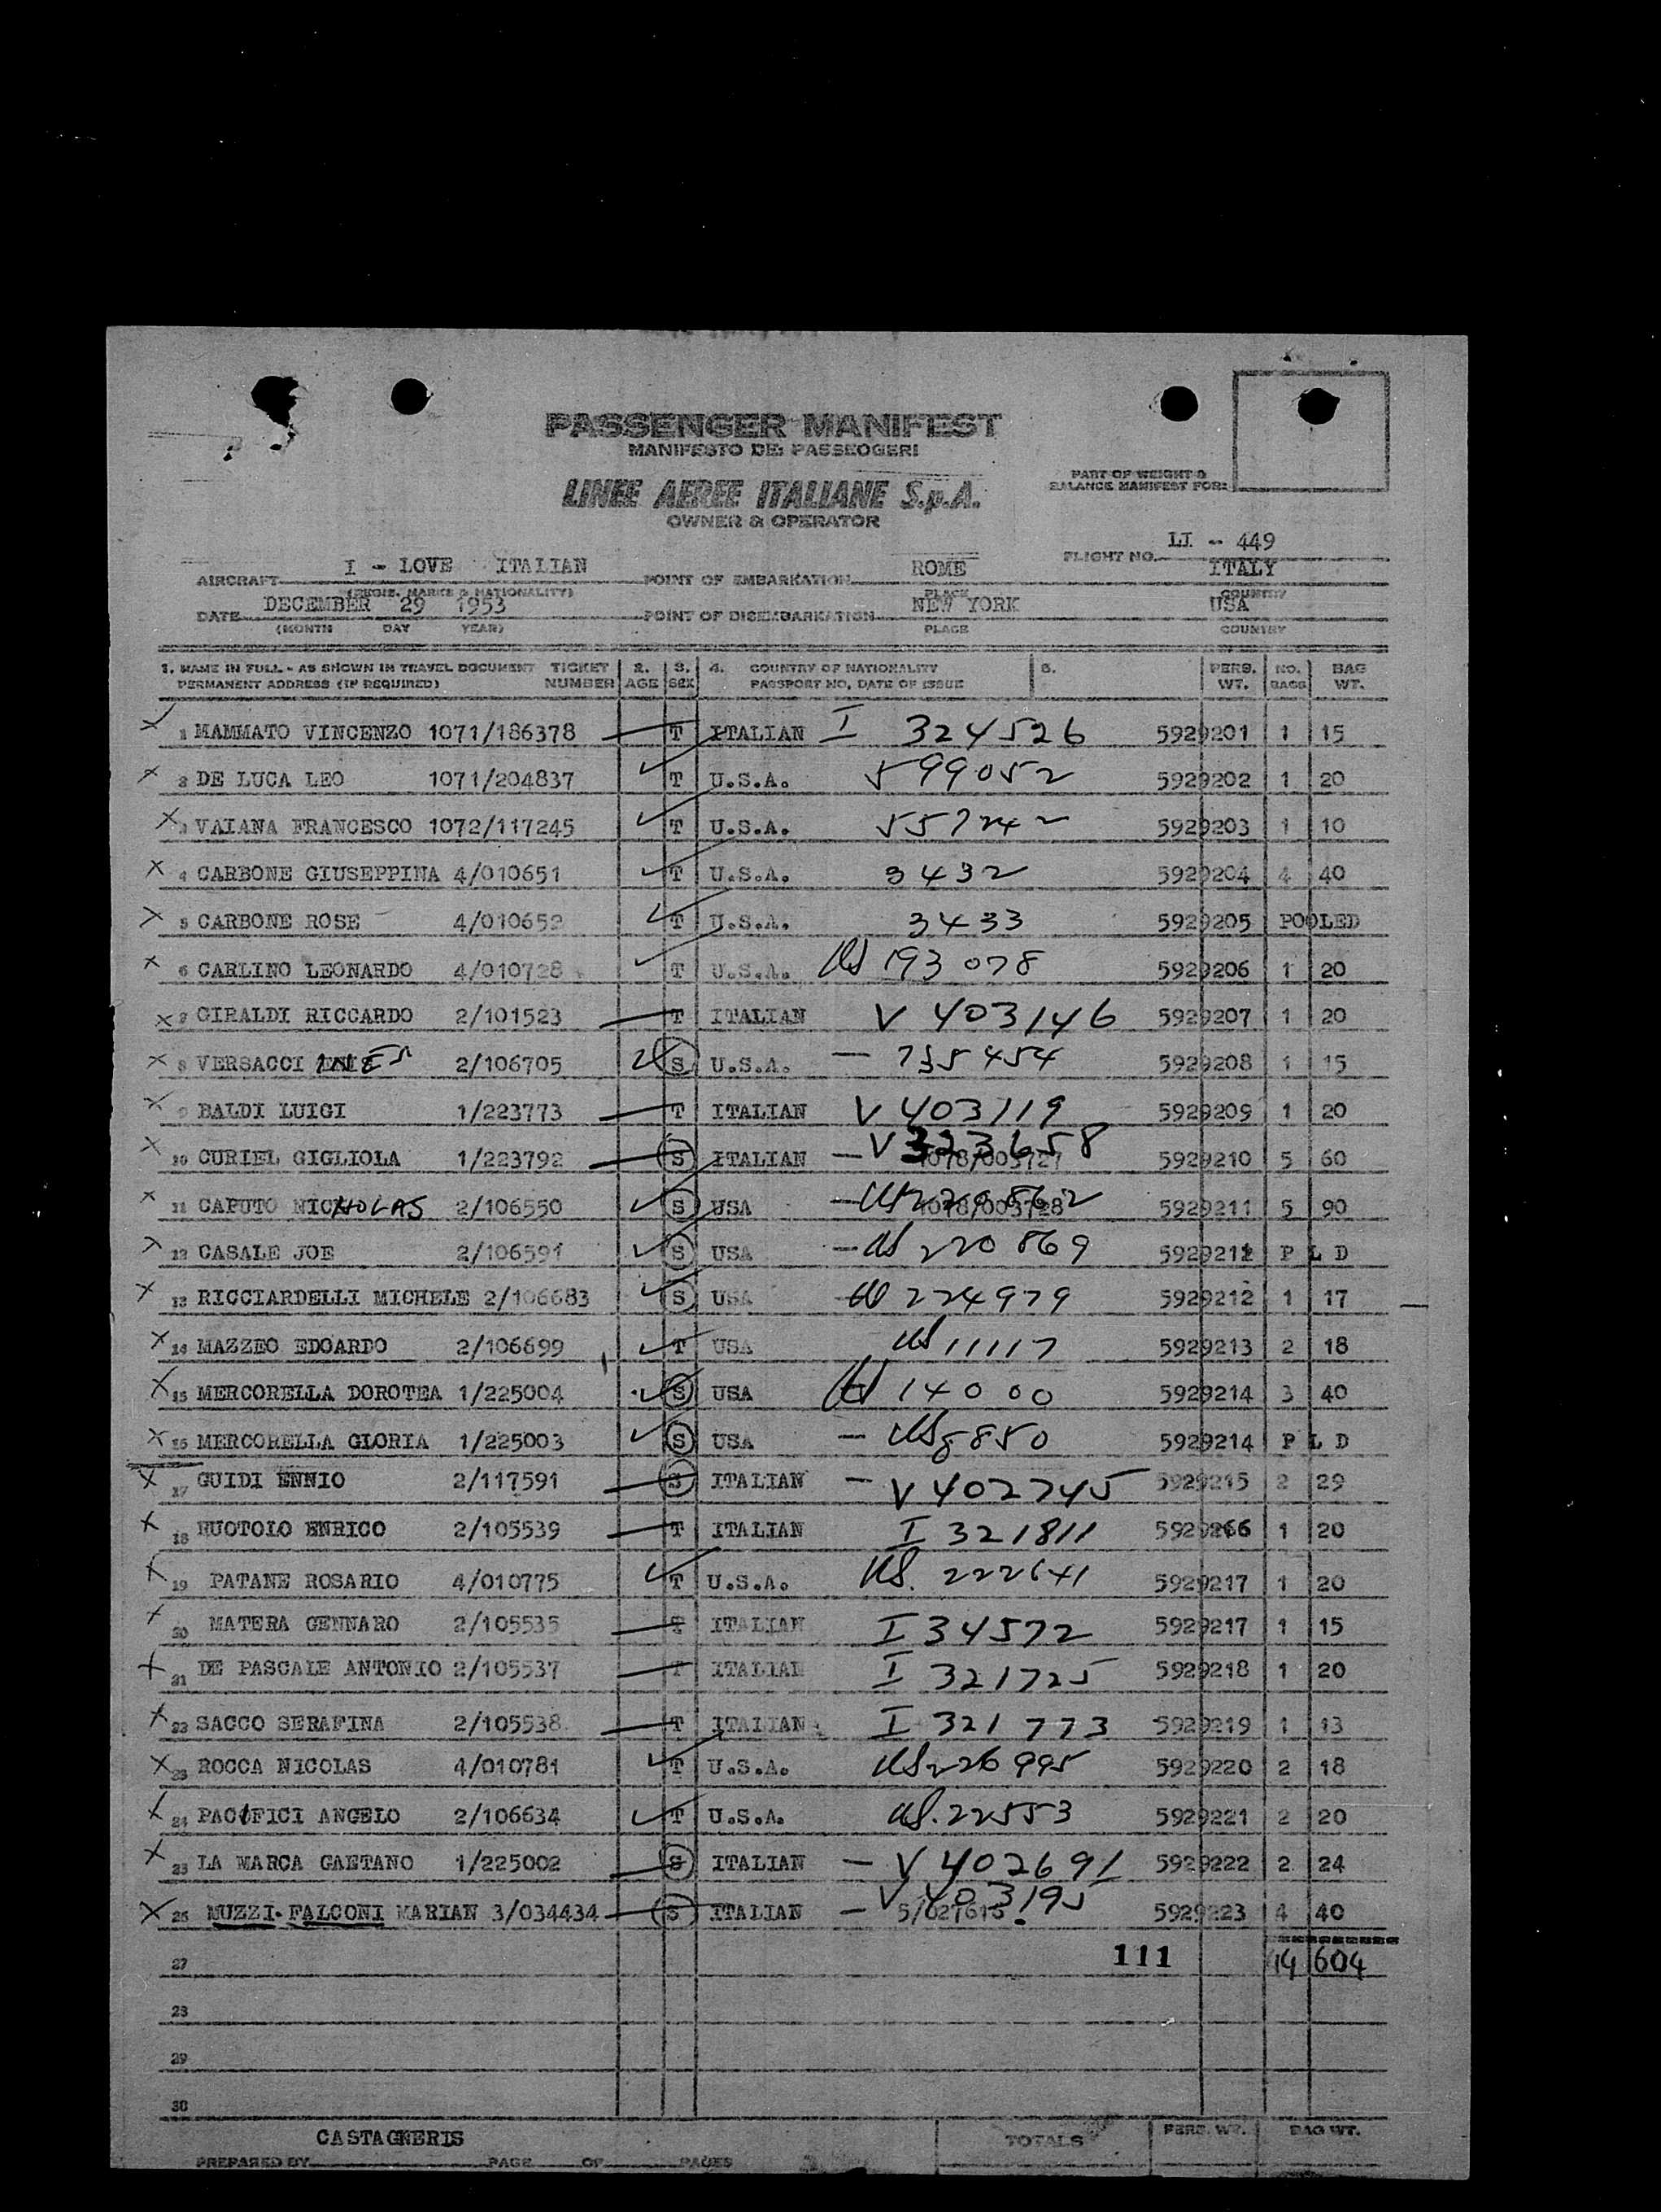 PASSENGER MANIFEST
MANIFESTO DEI PASSEGGERI
LINEE AEREE ITALIANE S.p.A.
OWNER & OPERATOR
PART OF WEIGHT &
BALANCE MANIFEST FOR:
FLIGHT NO. LI - 449
AIRCRAFT I - LOVE ITALIAN POINT OF EMBARKATION ROME ITALY
(REGIS. MARKS & NATIONALITY) PLACE COUNTRY
DATE DECEMBER 29 1953 POINT OF DISEMBARKATION NEW YORK USA
(MONTH DAY YEAR) PLACE COUNTRY
1. NAME IN FULL - AS SHOWN IN TRAVEL DOCUMENT TICKET 2. 3. 4. COUNTRY OF NATIONALITY 5. PERS. NO. BAG
PERMANENT ADDRESS (IF REQUIRED) NUMBER AGE SEX PASSPORT NO, DATE OF ISSUE WT. BAGS WT.
1 MAMMATO VINCENZO 1071/186378 T ITALIAN I 324526 5929201 1 15
2 DE LUCA LEO 1071/204837 T U.S.A. 599052 5929202 1 20
3 VAIANA FRANCESCO 1072/117245 T U.S.A. 557242 5929203 1 10
4 CARBONE GIUSEPPINA 4/010651 T U.S.A. 3432 5929204 4 40
5 CARBONE ROSE 4/010652 T U.S.A. 3433 5929205 POOLED
6 CARLINO LEONARDO 4/010728 T U.S.A. US 193078 5929206 1 20
7 GIRALDI RICCARDO 2/101523 T ITALIAN V 403146 5929207 1 20
8 VERSACCI INES 2/106705 S U.S.A. — 735454 5929208 1 15
9 BALDI LUIGI 1/223773 T ITALIAN V 403119 5929209 1 20
10 CURIEL GIGLIOLA 1/223792 S ITALIAN — V 323658 5929210 5 60
11 CAPUTO NICHOLAS 2/106550 S USA — 5929211 5 90
12 CASALE JOE 2/106591 S USA — US 220869 5929211 P L D
13 RICCIARDELLI MICHELE 2/106683 S USA US 224979 5929212 1 17
14 MAZZEO EDOARDO 2/106699 T USA US 11117 5929213 2 18
15 MERCORELLA DOROTEA 1/225004 S USA US 14000 5929214 3 40
16 MERCORELLA GLORIA 1/225003 S USA — US 8850 5929214 P L D
17 GUIDI ENNIO 2/117591 S ITALIAN — V 402745 5929215 2 29
18 RUOTOLO ENRICO 2/105539 T ITALIAN I 321811 5929266 1 20
19 PATANE ROSARIO 4/010775 T U.S.A. US. 222641 5929217 1 20
20 MATERA GENNARO 2/105535 T ITALIAN I 34572 5929217 1 15
21 DE PASCALE ANTONIO 2/105537 T ITALIAN I 321725 5929218 1 20
22 SACCO SERAFINA 2/105538 T ITALIAN I 321773 5929219 1 13
23 ROCCA NICOLAS 4/010781 T U.S.A. US 226995 5929220 2 18
24 PACIFICI ANGELO 2/106634 T U.S.A. US. 22553 5929221 2 20
25 LA MARCA GAETANO 1/225002 S ITALIAN — V 402691 5929222 2 24
26 MUZZI-FALCONI MARIAN 3/034434 S ITALIAN — V 403195 5929223 4 40
27 111 14 604
28
29
30
CASTAGNERIS TOTALS PERS. WT. BAG WT.
PREPARED BY PAGE OF PAGES